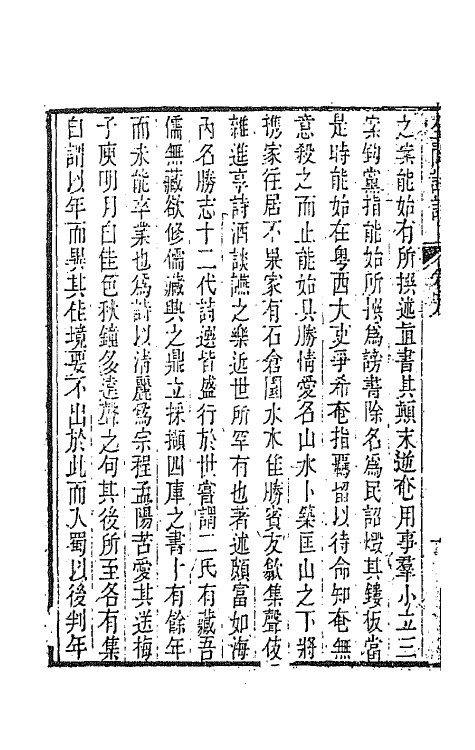 之案能始有所撰述直書其顛末逆奄用事羣小立三
案鈎黨指能始所撰爲謗書除名爲民詔燬其鏤板當
是時能始在粤西大吏爭希奄指羈留以待命知奄無
意殺之而止能始具勝情愛名山水卜築匡山之下將
攜家往居不果家有石倉園水木佳勝賓友歙集聲伎
雜進享詩酒談讌之樂近世所罕有也著述頗富如海
內名勝志十二代詩選皆盛行於世嘗謂二氏有藏吾
儒無藏欲修儒藏與之鼎立採擷四庫之書十有餘年
而未能卒業也爲詩以清麗爲宗程孟陽苦愛其送梅
子庾明月自佳色秋鐘多遠聲之句其後所至各有集
自謂以年而異其佳境要不出於此而入蜀以後判年